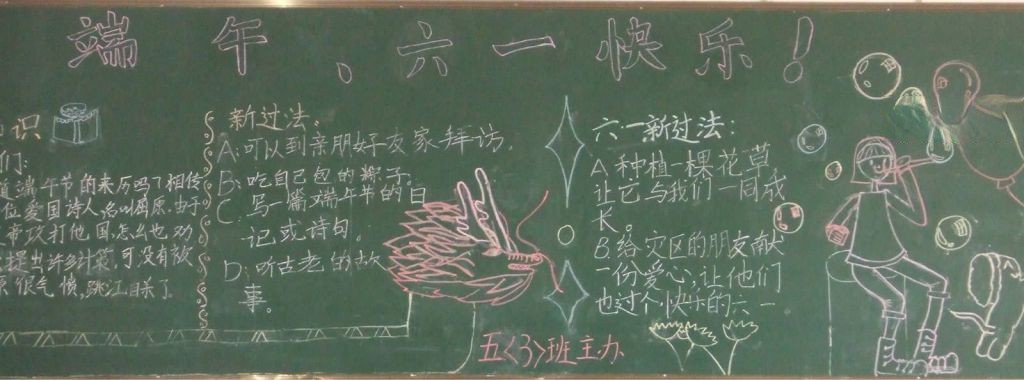 端午、六一快乐!
识
们:
道端午节的来历吗?相传
位爱国诗人,名叫屈原.由于
帝攻打他国,怎么也劝
提出许多计策,可没有被
很气愤,跳江自杀了
新过法:
A:可以到亲朋好友家拜访。
B:吃自己包的粽子。
C:写一篇端午节的日
记或诗句。
D:听古老的故
事。
六一新过法:
A种植一棵花草
让它与我们一同成
长。
B给灾区的朋友献
一份爱心,让他们
也过个快乐的六一
五<3>班主办